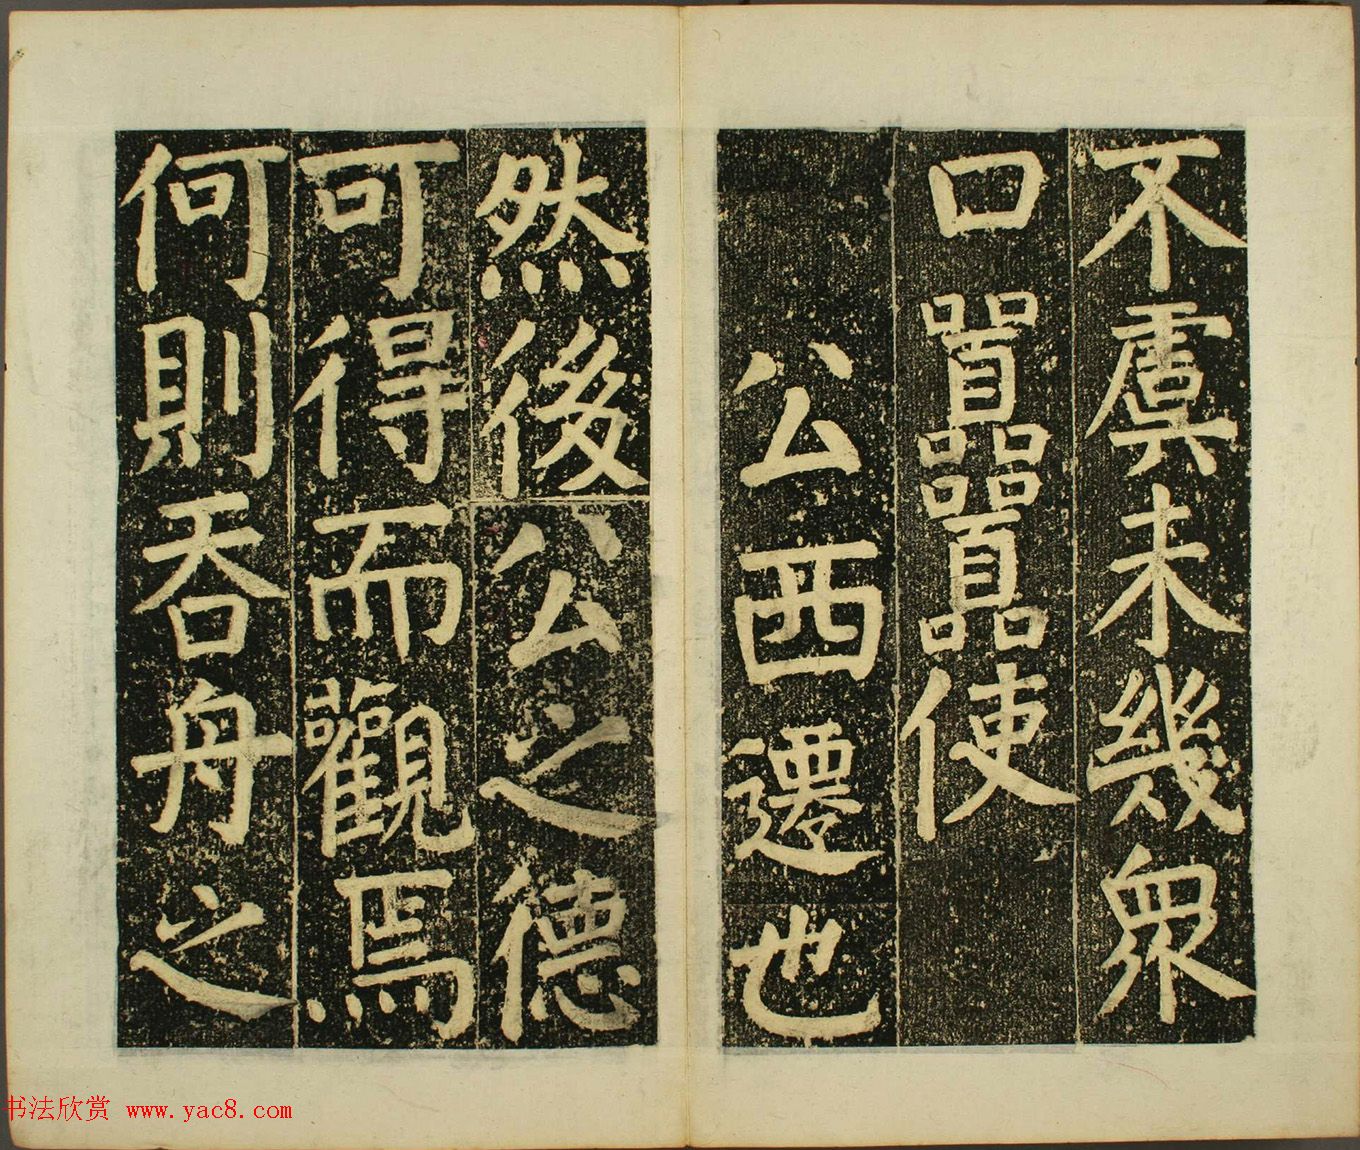 不虞未幾衆
口囂囂使
公西遷也
然後公之德
可得而觀焉
何則吞舟之
书法欣赏 www.yac8.com